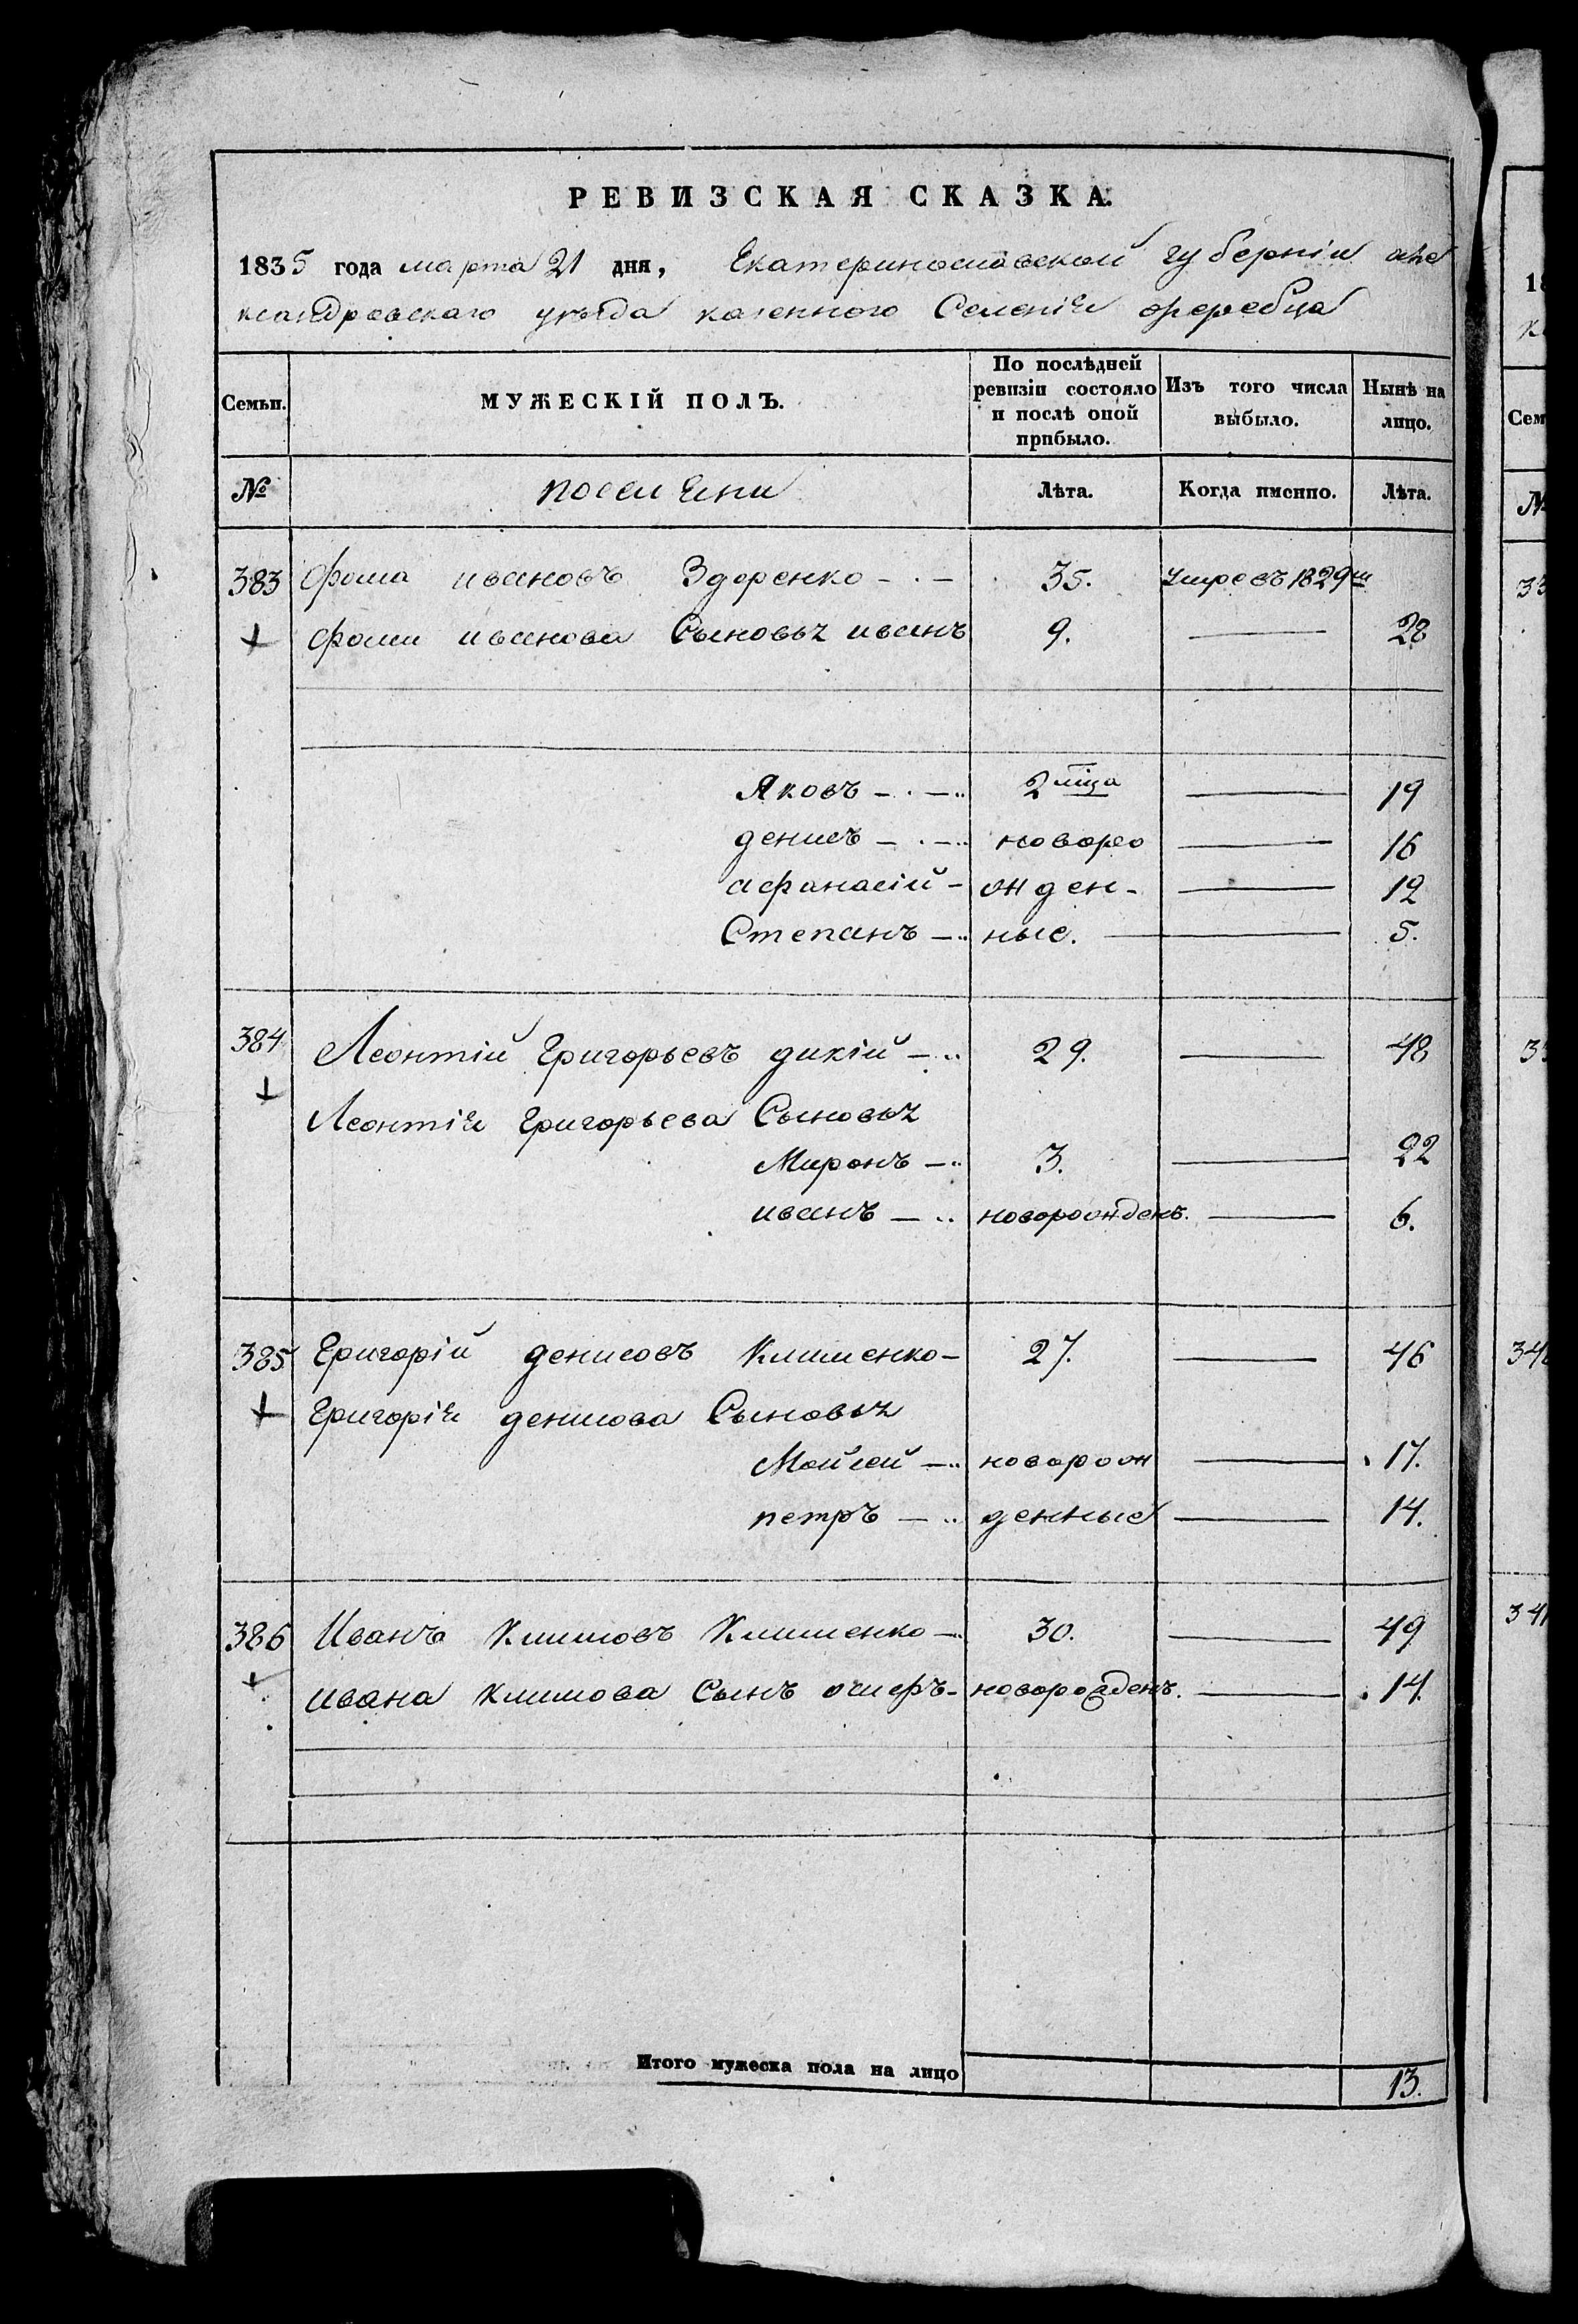 РЕВИЗСКАЯ СКАЗКА.
1835 года марта 21 дня, Екатеринославской губерніи але
ксандровскаго уѣзда казенного Селенія жеребца
Семьи. МУЖЕСКІЙ ПОЛЪ. По послѣдней ревизіи состояло и послѣ оной прибыло. Изъ того числа выбыло. Нынѣ на лицо.
№ Лѣта. Когда именно. Лѣта.
383 фома ивановъ Здоренко 35. умре въ 1829м
фомы иванова Сыновья иванъ 9. — 28
Яковъ 2 мца — 19
денисъ новоро — 16
афанасій жден- — 12
Степанъ ные. — 5.
384 Леонтій Григорьевъ дикій 29. — 48
Леонтія Григорьева Сыновья
Миронъ 3. — 22
иванъ новорожденъ. — 6.
385 Григорій денисовъ Клименко 27. — 46
Григорія денисова Сыновья
Мойсей новорож — 17.
петръ денные — 14.
386 Иванъ Климовъ Клименко 30. — 49
ивана климова Сынъ новорожденъ. — 14.
Итого мужеска пола на лицо 13.
18
Сем
№
33